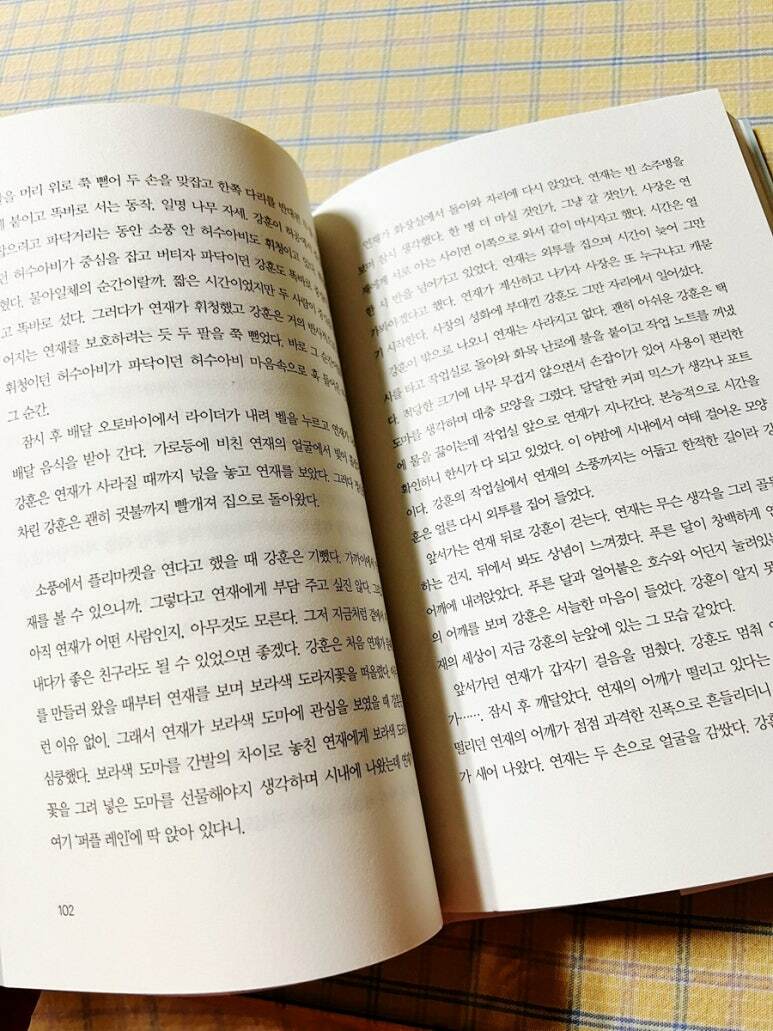 을 머리 위로 쭉 뻗어 두 손을 맞잡고 한쪽 다리를 반대편
에 붙이고 똑바로 서는 동작, 일명 나무 자세. 강훈이 허공에서
잡으려고 파닥거리는 동안 소풍 안 허수아비도 휘청이고 있
던 허수아비가 중심을 잡고 버티자 파닥이던 강훈도 똑바로
췄다. 물아일체의 순간이랄까. 짧은 시간이었지만 두 사람이
고 똑바로 섰다. 그러다가 연재가 휘청했고 강훈은 거의 반사적으로
어지는 연재를 보호하려는 듯 두 팔을 쭉 뻗었다. 바로 그 순간
휘청이던 허수아비가 파닥이던 허수아비 마음속으로 훅 들어온
그 순간.
잠시 후 배달 오토바이에서 라이더가 내려 벨을 누르고 연재가
배달 음식을 받아 간다. 가로등에 비친 연재의 얼굴에서 빛이
강훈은 연재가 사라질 때까지 넋을 놓고 연재를 보았다. 그러다 정신
차린 강훈은 괜히 귓불까지 빨개져 집으로 돌아왔다.
소풍에서 플리마켓을 연다고 했을 때 강훈은 기뻤다. 가까이에서
재를 볼 수 있으니까. 그렇다고 연재에게 부담 주고 싶진 않다.
아직 연재가 어떤 사람인지, 아무것도 모른다. 그저 지금처럼 곁에서
내다가 좋은 친구라도 될 수 있었으면 좋겠다. 강훈은 처음 연재가
를 만들러 왔을 때부터 연재를 보며 보라색 도라지꽃을 떠올렸다.
런 이유 없이. 그래서 연재가 보라색 도마에 관심을 보였을 때
심쿵했다. 보라색 도마를 간발의 차이로 놓친 연재에게 보라색
꽃을 그려 넣은 도마를 선물해야지 생각하며 시내에 나왔는데
여기 '퍼플 레인'에 딱 앉아 있다니.
102
연재가 화장실에서 돌아와 자리에 다시 앉았다. 연재는 빈 소주병을
보며 잠시 생각했다. 한 병 더 마실 것인가, 그냥 갈 것인가. 사장은 연
재에게 서로 아는 사이면 이쪽으로 와서 같이 마시자고 했다. 시간은 열
한 시 반을 넘어가고 있었다. 연재는 외투를 집으며 시간이 늦어 그만
가봐야겠다고 했다. 연재가 계산하고 나가자 사장은 또 누구냐고 캐묻
기 시작한다. 사장의 성화에 부대낀 강훈도 그만 자리에서 일어섰다.
강훈이 밖으로 나오니 연재는 사라지고 없다. 괜히 아쉬운 강훈은 택
시를 타고 작업실로 돌아와 화목 난로에 불을 붙이고 작업 노트를 꺼냈
다. 적당한 크기에 너무 무겁지 않으면서 손잡이가 있어 사용이 편리한
도마를 생각하며 대충 모양을 그렸다. 달달한 커피 믹스가 생각나 포트
에 물을 끓이는데 작업실 앞으로 연재가 지나간다. 본능적으로 시간을
확인하니 한시가 다 되고 있었다. 이 야밤에 시내에서 여태 걸어온 모양
이다. 강훈의 작업실에서 연재의 소풍까지는 어둡고 한적한 길이라 강
훈은 얼른 다시 외투를 집어 들었다.
앞서가는 연재 뒤로 강훈이 걷는다. 연재는 무슨 생각을 그리 골똘
하는 건지, 뒤에서 봐도 상념이 느껴졌다. 푸른 달이 창백하게 연
어깨에 내려앉았다. 푸른 달과 얼어붙은 호수와 어딘지 눌려있는
의 어깨를 보며 강훈은 서늘한 마음이 들었다. 강훈이 알지 못
재의 세상이 지금 강훈의 눈앞에 있는 그 모습 같았다.
앞서가던 연재가 갑자기 걸음을 멈췄다. 강훈도 멈춰
가……. 잠시 후 깨달았다. 연재의 어깨가 떨리고 있다는
떨리던 연재의 어깨가 점점 과격한 진폭으로 흔들리더니
가 새어 나왔다. 연재는 두 손으로 얼굴을 감쌌다. 강훈